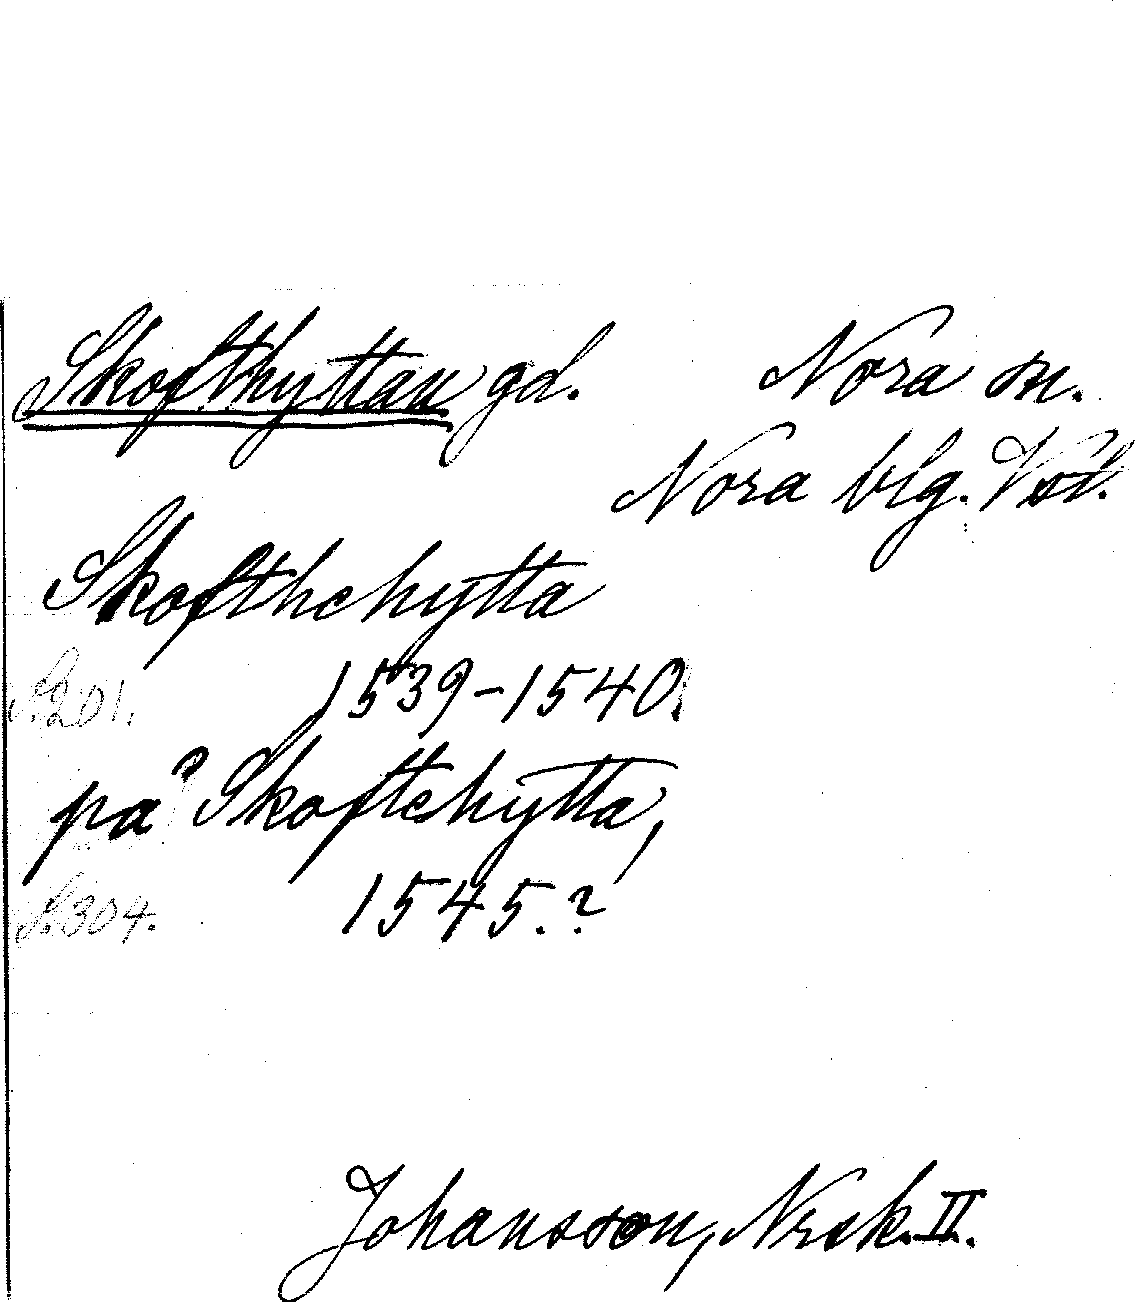 Skofthyttan gd. Nora sn.
Nora blg. Vstl.
Skofthehytta
S. 201. 1539-1540.
på Skoftehytta,
S. 304. 1545.?
Johansson, Nrsk. II.